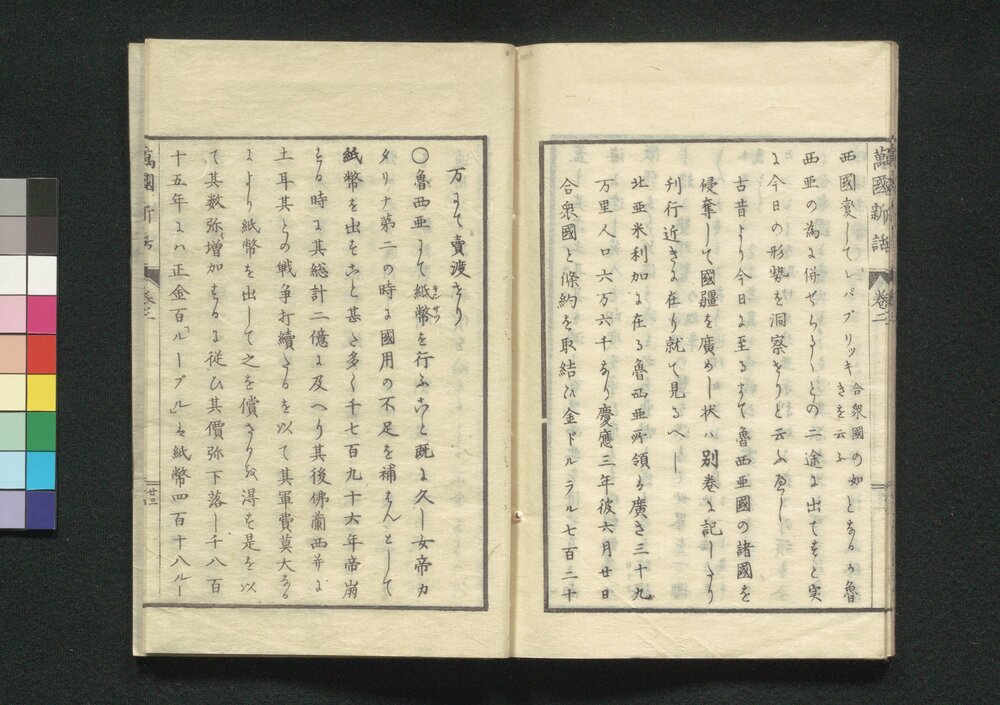 萬國新話 卷二
西國変してレパブリッキ合衆國の如きを云ふとなるか魯
西亜の為に併せらるゝとの二途に出てすと実
に今日の形勢を洞察せりと云ふべし
古昔より今日に至るまて魯西亜國の諸國を
侵奪して國疆を廣めし状ハ別卷に記したり
刊行近きに在り就て見るへし
北亜米利加に在る魯西亜所領は廣き三十九
万里人口六万六千なり慶應三年彼六月廿日
合衆國と條約を取結ひ金ドルラル七百二十
万にて賣渡せり
〇魯西亜にて紙幣を行ふこと既に久し女帝カ
タリナ第二の時に國用の不足を補はんとして
紙幣を出すこと甚た多く千七百九十六年帝崩
する時に其総計二億に及へり其後佛蘭西并に
土耳其との戦争打續たるを以て其軍費莫大なる
により紙幣を出して之を償さるを得す是を以
て其数弥増加するに従ひ其價弥下落し千八百
十五年にハ正金百「ルーブル」は紙幣四百十八ルー
萬國新話 卷二
廿三